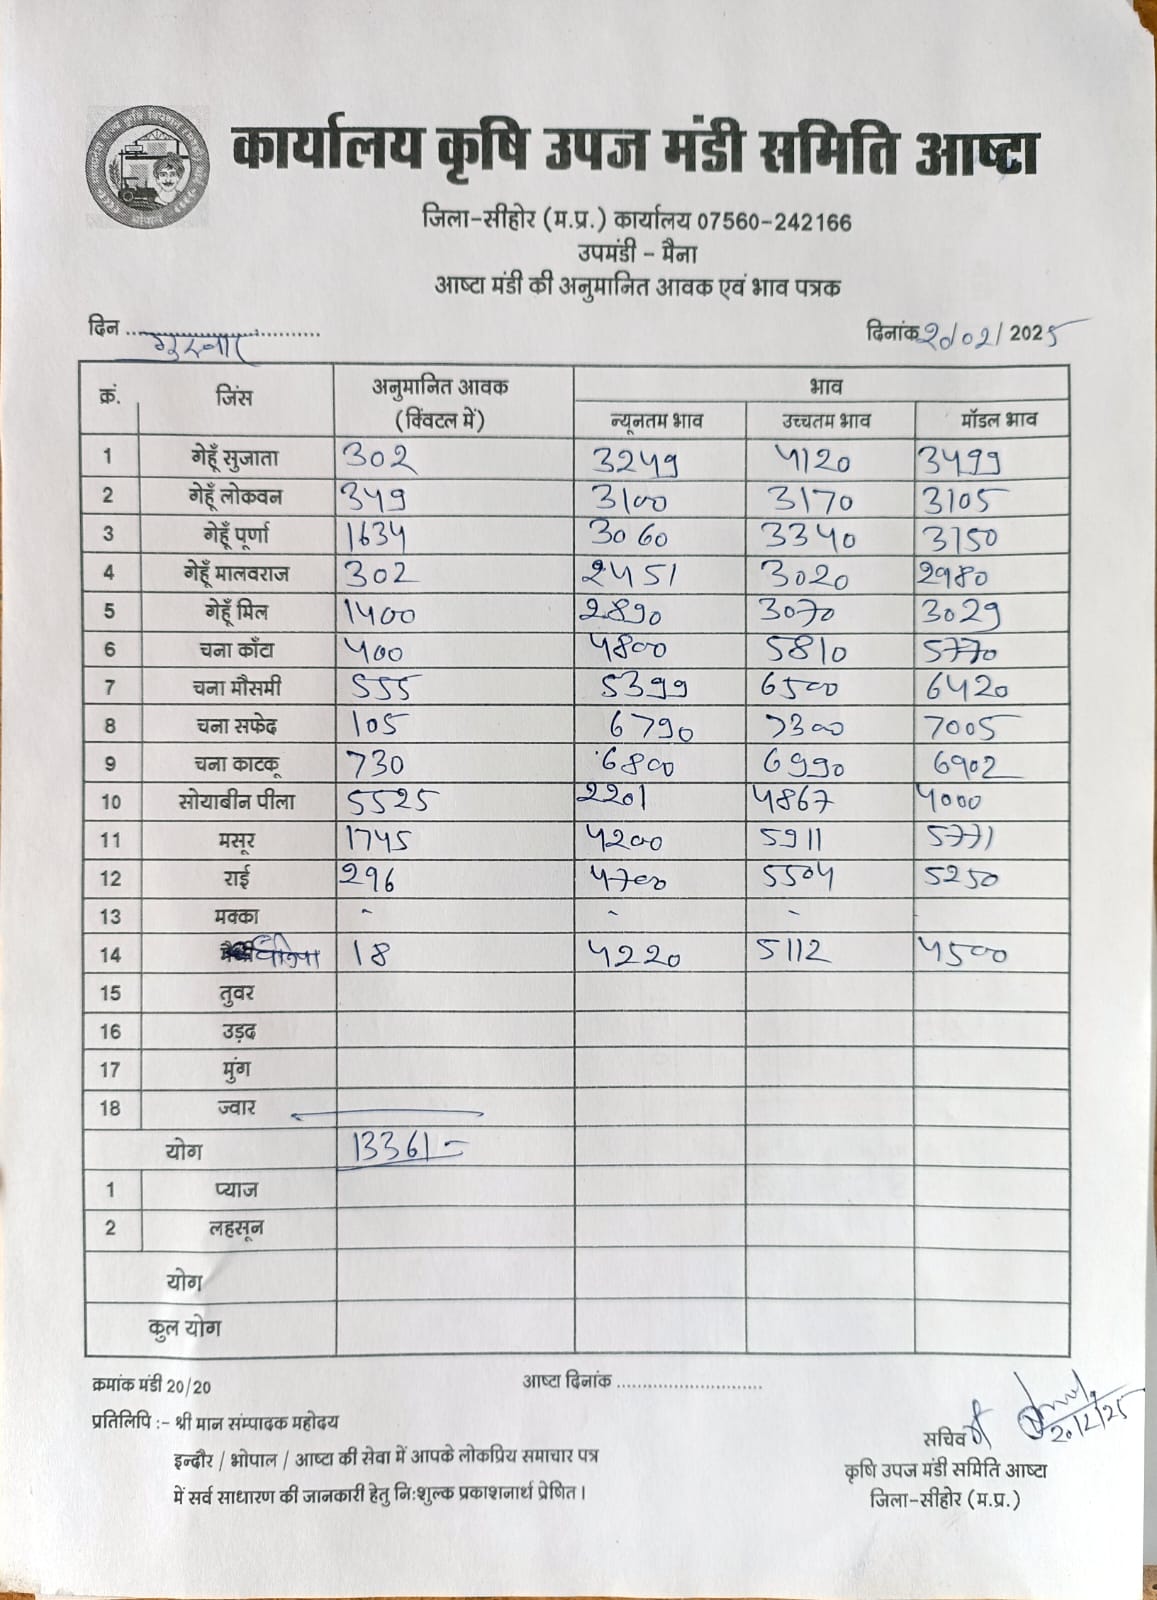 कार्यालय कृषि उपज मंडी समिति आष्टा
जिला-सीहोर (म.प्र.) कार्यालय 07560-242166
उपमंडी - मैना
आष्टा मंडी की अनुमानित आवक एवं भाव पत्रक
दिन ...गुरुवार... दिनांक 20/02/2025
क्रं. जिंस अनुमानित आवक (क्विंटल में) भाव
न्यूनतम भाव उच्चतम भाव मॉडल भाव
1 गेहूँ सुजाता 302 3249 4120 3499
2 गेहूँ लोकवन 349 3100 3170 3105
3 गेहूँ पूर्णा 1634 3060 3340 3150
4 गेहूँ मालवराज 302 2451 3020 2980
5 गेहूँ मिल 1400 2890 3070 3029
6 चना काँटा 400 4800 5810 5770
7 चना मौसमी 555 5399 6500 6420
8 चना सफेद 105 6790 7300 7005
9 चना काटकू 730 6800 6990 6902
10 सोयाबीन पीला 5525 2201 4867 4000
11 मसूर 1745 4200 5911 5771
12 राई 296 4700 5504 5250
13 मक्का - - -
14 18 4220 5112 4500
15 तुवर
16 उड़द
17 मुंग
18 ज्वार
योग 13361-
1 प्याज
2 लहसून
योग
कुल योग
क्रमांक मंडी 20/20 आष्टा दिनांक ..............................
प्रतिलिपि :- श्री मान संम्पादक महोदय
इन्दौर / भोपाल / आष्टा की सेवा में आपके लोकप्रिय समाचार पत्र
में सर्व साधारण की जानकारी हेतु नि:शुल्क प्रकाशनार्थ प्रेषित।
20/2/25
सचिव
कृषि उपज मंडी समिति आष्टा
जिला-सीहोर (म.प्र.)